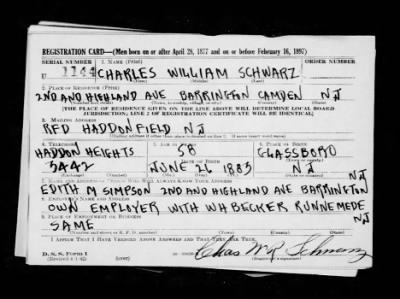 REGISTRATION CARD—(Men born on or after April 28, 1877 and on or before February 16, 1897)
SERIAL NUMBER 1. NAME (Print) ORDER NUMBER
U 1144 CHARLES WILLIAM SCHWARZ
2. PLACE OF RESIDENCE (Print)
2ND AND HIGHLAND AVE BARRINGTON CAMDEN N J
[THE PLACE OF RESIDENCE GIVEN ON THE LINE ABOVE WILL DETERMINE LOCAL BOARD
JURISDICTION; LINE 2 OF REGISTRATION CERTIFICATE WILL BE IDENTICAL]
3. MAILING ADDRESS
RFD HADDONFIELD N J
4. TELEPHONE 5. AGE IN YEARS 6. PLACE OF BIRTH
HADDON HEIGHTS 58 GLASSBORO
DATE OF BIRTH
5442 JUNE 26 1883 N J
7. NAME AND ADDRESS OF PERSON WHO WILL ALWAYS KNOW YOUR ADDRESS
EDITH M SIMPSON 2ND AND HIGHLAND AVE BARRINGTON
N J
8. EMPLOYER'S NAME AND ADDRESS
OWN EMPLOYER WITH WH BECKER RUNNEMEDE
N J
9. PLACE OF EMPLOYMENT OR BUSINESS
SAME
I AFFIRM THAT I HAVE VERIFIED ABOVE ANSWERS AND THAT THEY ARE TRUE.
D. S. S. Form 1
Chas Wm Schwarz